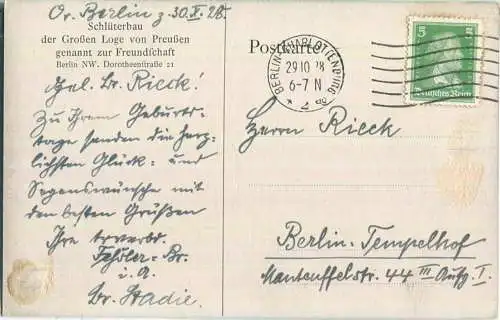 Or. Berlin z. 30.X.28.
Schlüterbau
der Großen Loge von Preußen
genannt zur Freundschaft
Berlin NW. Dorotheenstraße 21
Postkarte
BERLIN-CHARLOTTENBURG
29.10.28
6-7 N
5
Deutsches Reich
Gel. Br. Rieck!
Zu Ihrem Geburts-
tage senden die herz-
lichsten Glück- und
Segenswünsche mit
den besten Grüßen
Ihre
i. A.
Br. Stadie.
Herrn Rieck
Berlin-Tempelhof
Manteuffelstr. 44 III Aufg. I.